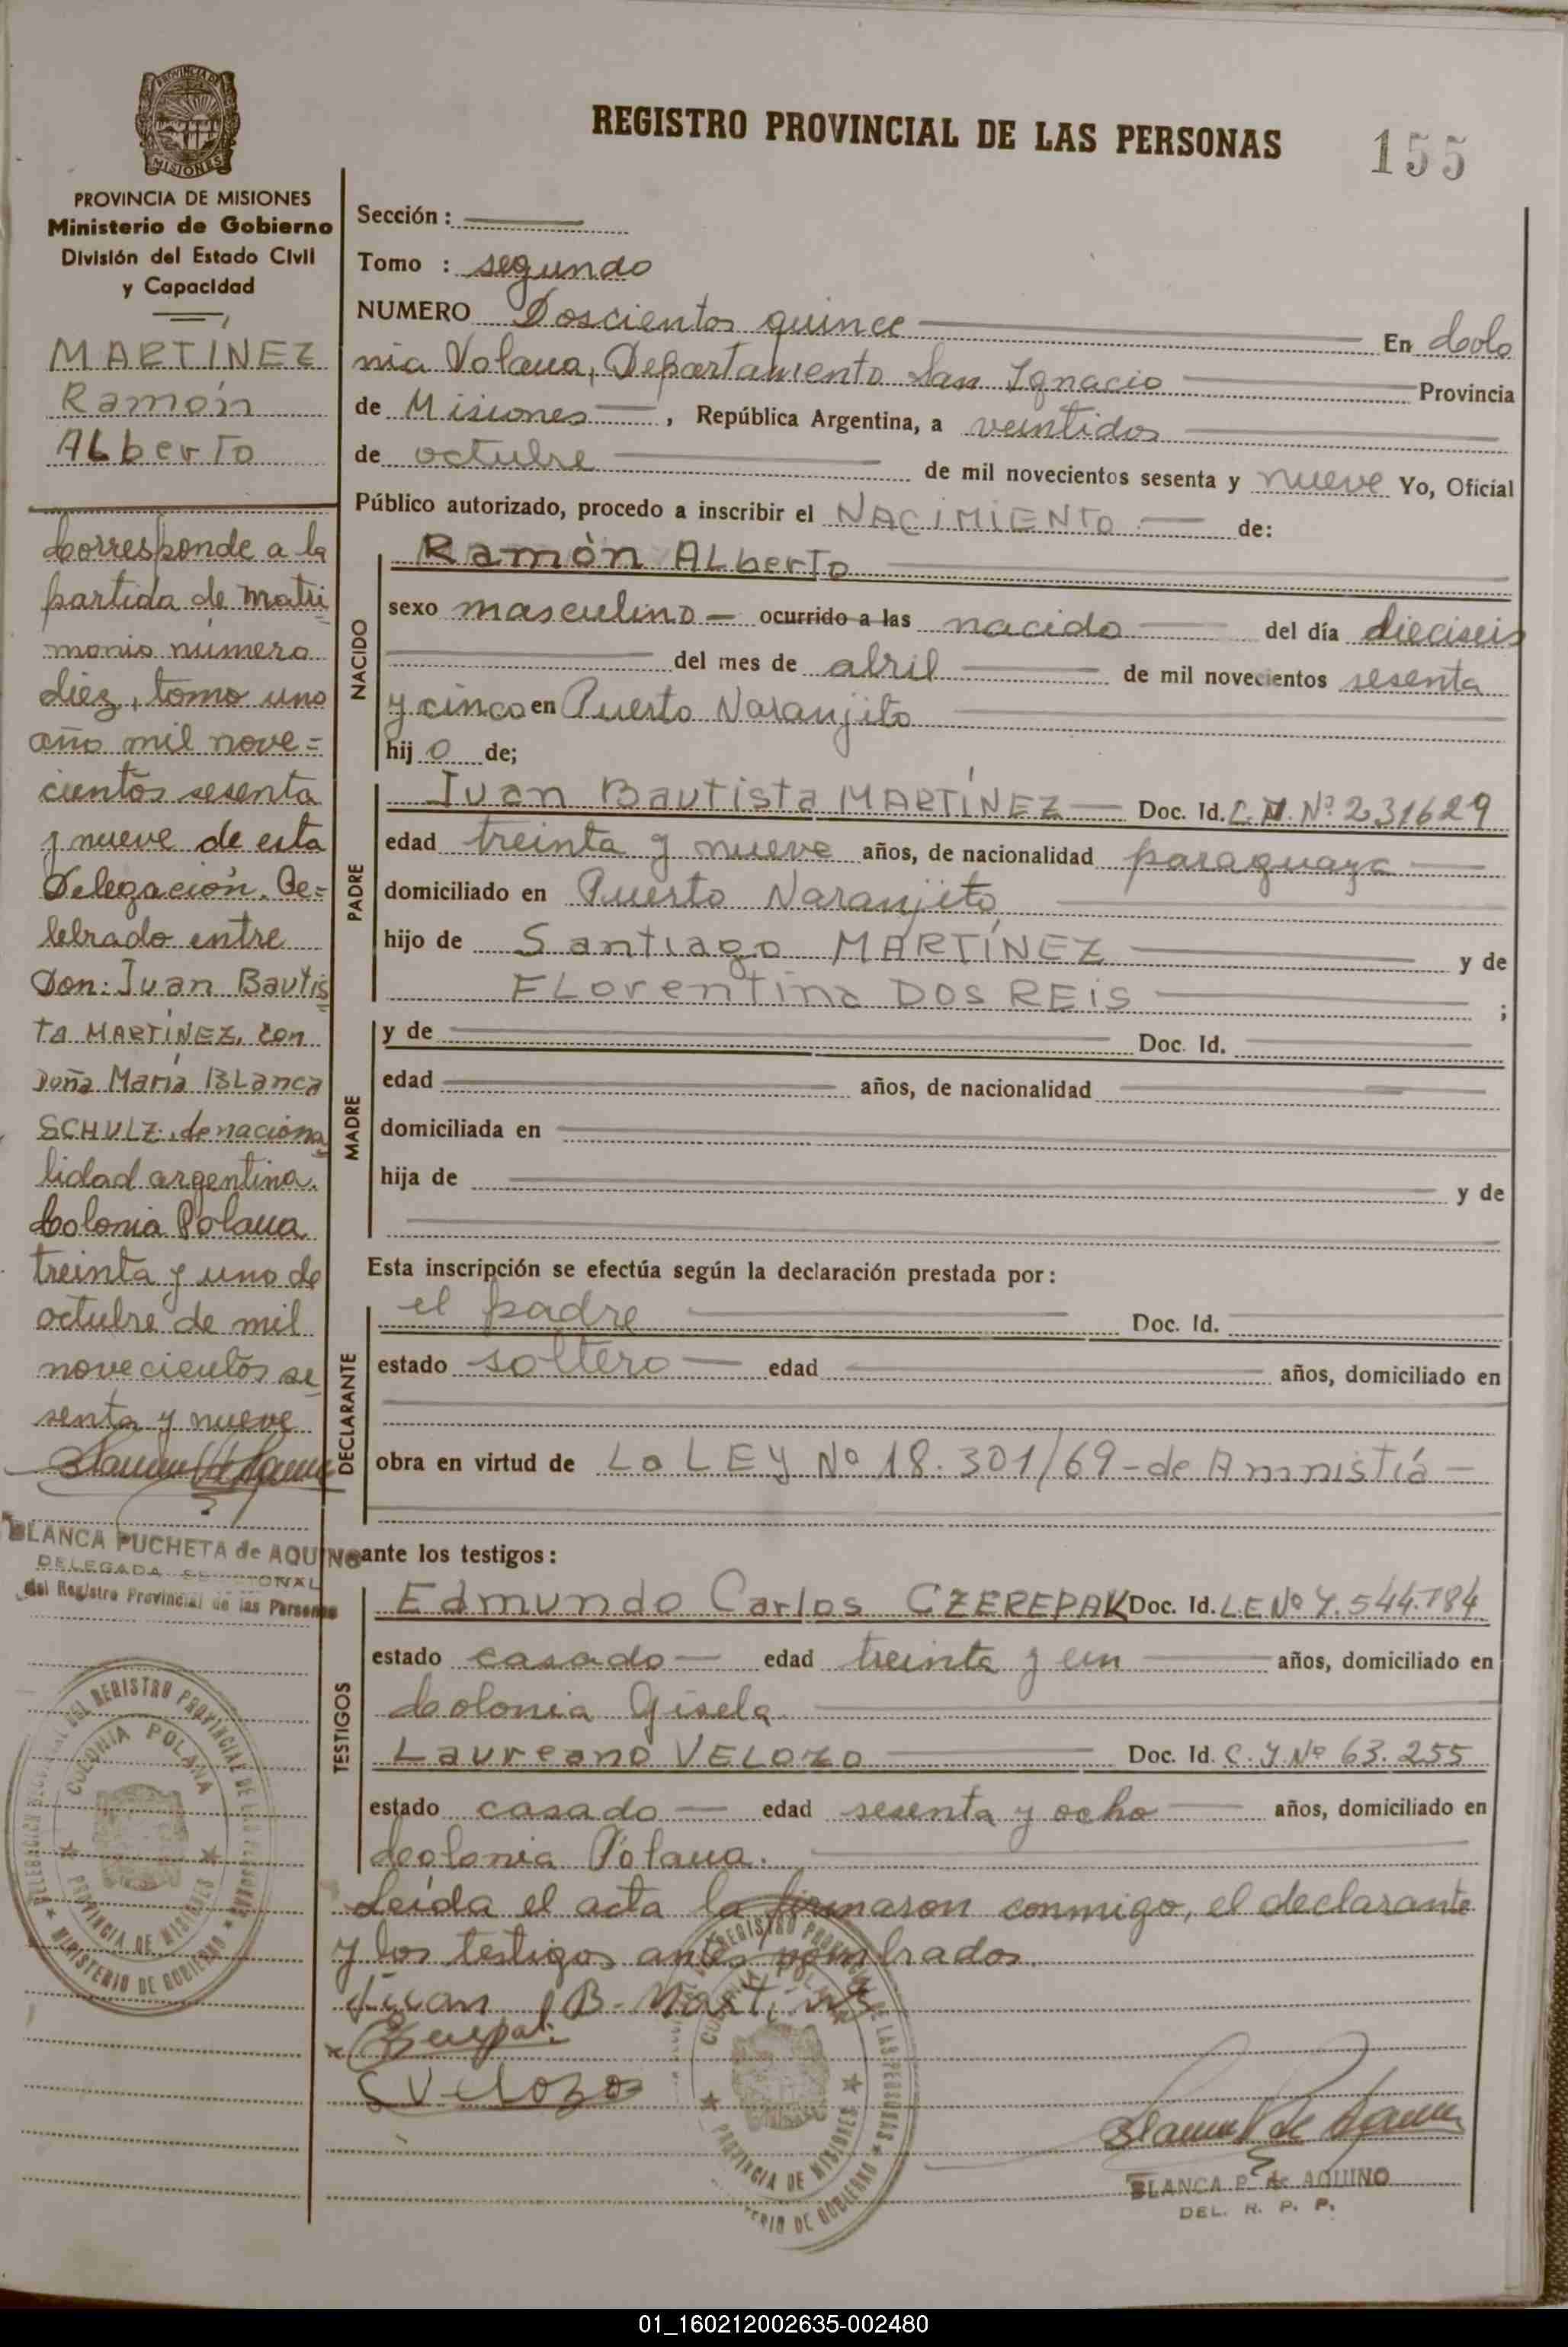 PROVINCIA DE MISIONES
Ministerio de Gobierno
División del Estado Civil
y Capacidad
MARTÍNEZ
Ramón
ALberto
Corresponde a la
partida de matri
monio número
diez, tomo uno
año mil nove=
cientos sesenta
y nueve de esta
Delegación. Ce=
lebrado entre
Don: Juan Bautis
ta MARTÍNEZ, con
Doña María BLanca
SCHULZ, de naciona
lidad argentina.
Colonia Polana
treinta y uno de
octubre de mil
novecientos se
senta y nueve
BLANCA PUCHETA de AQUINO
DELEGADA
del Registro Provincial de las Personas
DEL REGISTRO PROVINCIAL DE LAS PERSONAS
COLONIA POLANA
PROVINCIA DE MISIONES
MINISTERIO DE GOBIERNO
REGISTRO PROVINCIAL DE LAS PERSONAS
155
Sección :
Tomo : segundo
NUMERO Doscientos quince En Colo
nia Polana, Departamento San Ignacio Provincia
de Misiones , República Argentina, a veintidos
de octubre de mil novecientos sesenta y nueve Yo, Oficial
Público autorizado, procedo a inscribir el NACIMIENTO de:
NACIDO
Ramón ALberto
sexo masculino ocurrido a las nacido del día dieciseis
del mes de abril de mil novecientos sesenta
y cinco en Puerto Naranjito
hij o de;
PADRE
Juan Bautista MARTÍNEZ Doc. Id. Nº 231629
edad treinta y nueve años, de nacionalidad paraguaya
domiciliado en Puerto Naranjito
hijo de Santiago MARTÍNEZ y de
FLorentina DOS REIS ;
MADRE
y de Doc. Id.
edad años, de nacionalidad
domiciliada en
hija de y de
Esta inscripción se efectúa según la declaración prestada por :
DECLARANTE
el padre Doc. Id.
estado soltero edad años, domiciliado en
obra en virtud de La LEY Nº 18.301/69-de Amnistía
ante los testigos :
TESTIGOS
Edmundo Carlos CZEREPAK Doc. Id. L.E Nº 7.544.784
estado casado edad treinta y un años, domiciliado en
Colonia Gisela
Laureano VELOZO Doc. Id. C.I. Nº 63.255
estado casado edad sesenta y ocho años, domiciliado en
Colonia Polana.
Leída el acta la firmaron conmigo, el declarante
y los testigos antes nombrados.
Juan B. Martinez
Velozo
COLONIA POLANA
PROVINCIA DE MISIONES
BLANCA P. de AQUINO
DEL. R. P. P.
01_160212002635-002480